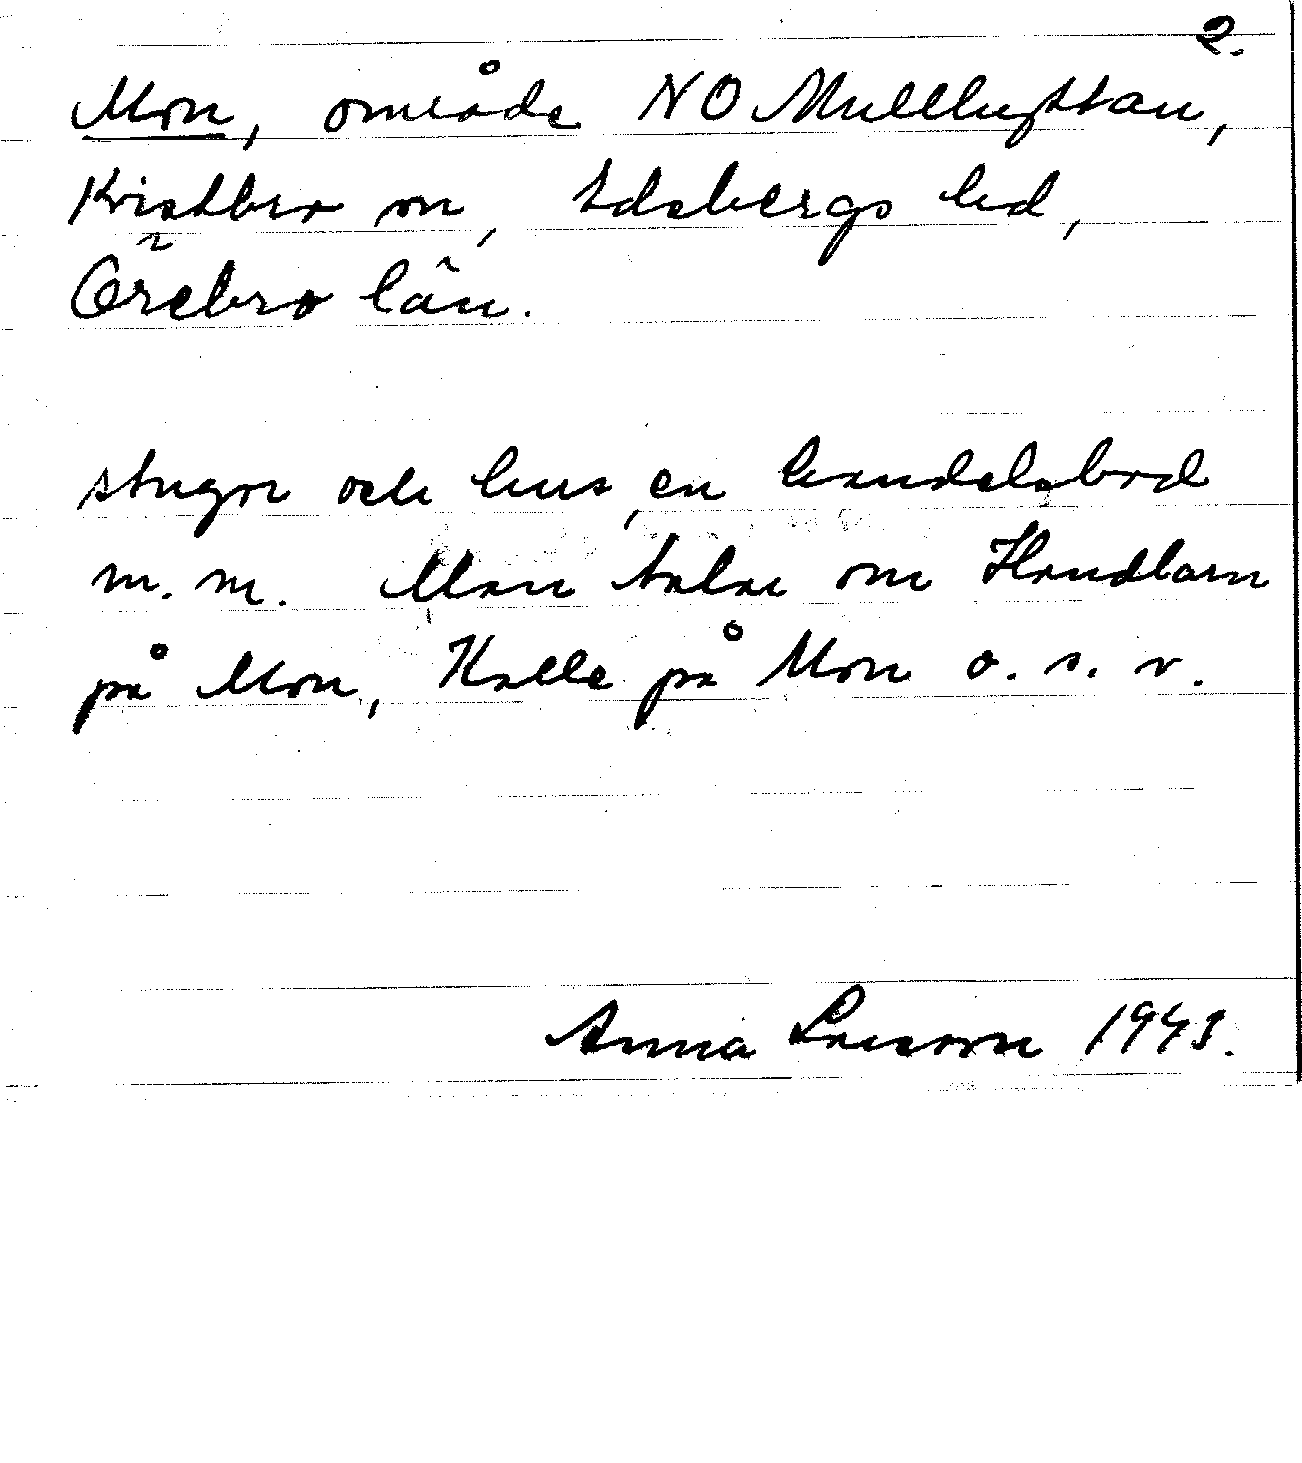 2.
Mon, område NO Mullhyttan,
Kvistbro sn, Edsbergs hd,
Örebro län.
stugor och hus, en handelsbod
m. m. Man talar om Handlarn
på Mon, Kalle på Mon o. s. v.
Anna Larsson 1943.